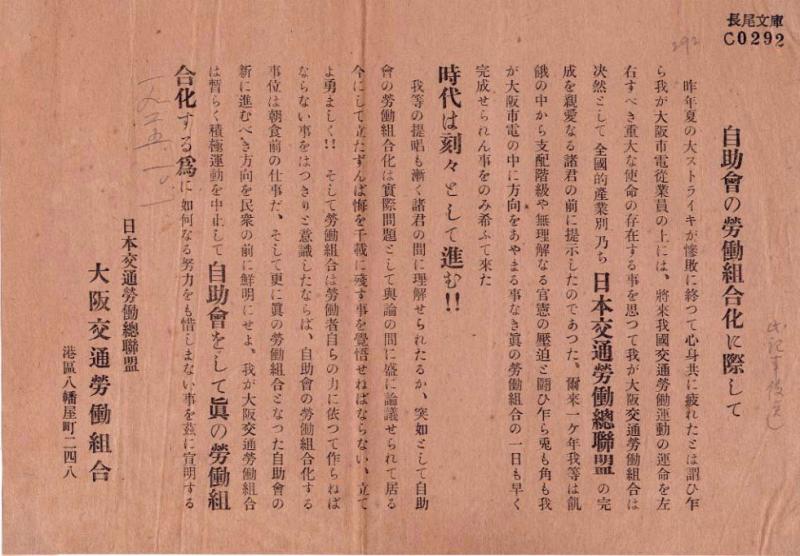 長尾文庫
C0292
292
自助會の勞働組合化に際して
昨年夏の大ストライキが慘敗に終つて心身共に疲れたとは謂ひ乍
ら我が大阪市電從業員の上には、將來我國交通勞働運動の運命を左
右すべき重大な使命の存在する事を思つて我が大阪交通勞働組合は
決然として全國的產業別乃ち日本交通勞働總聯盟の完
成を親愛なる諸君の前に提示したのであつた、爾來一ケ年我等は飢
餓の中から支配階級や無理解なる官憲の壓迫と鬪ひ乍ら兎も角も我
が大阪市電の中に方向をあやまる事なき眞の勞働組合の一日も早く
完成せられん事をのみ希ふて來た
時代は刻々として進む!!
我等の提唱も漸く諸君の間に理解せられたるか、突如として自助
會の勞働組合化は實際問題として輿論の間に盛に論議せられて居る
今にして立たずんば悔を千載に殘す事を覺悟せねばならない、立て
よ勇ましく!! そして勞働組合は勞働者自らの力に依つて作らねば
ならない事をはつきりと意識したならば、自助會の勞働組合化する
事位は朝食前の仕事だ、そして更に眞の勞働組合となつた自助會の
新に進むべき方向を民衆の前に鮮明にせよ、我が大阪交通勞働組合
は暫らく積極運動を中止して自助會をして眞の勞働組
合化する爲に如何なる努力をも惜しまない事を茲に宣明する
日本交通勞働總聯盟
大阪交通勞働組合
港區八幡屋町二四八